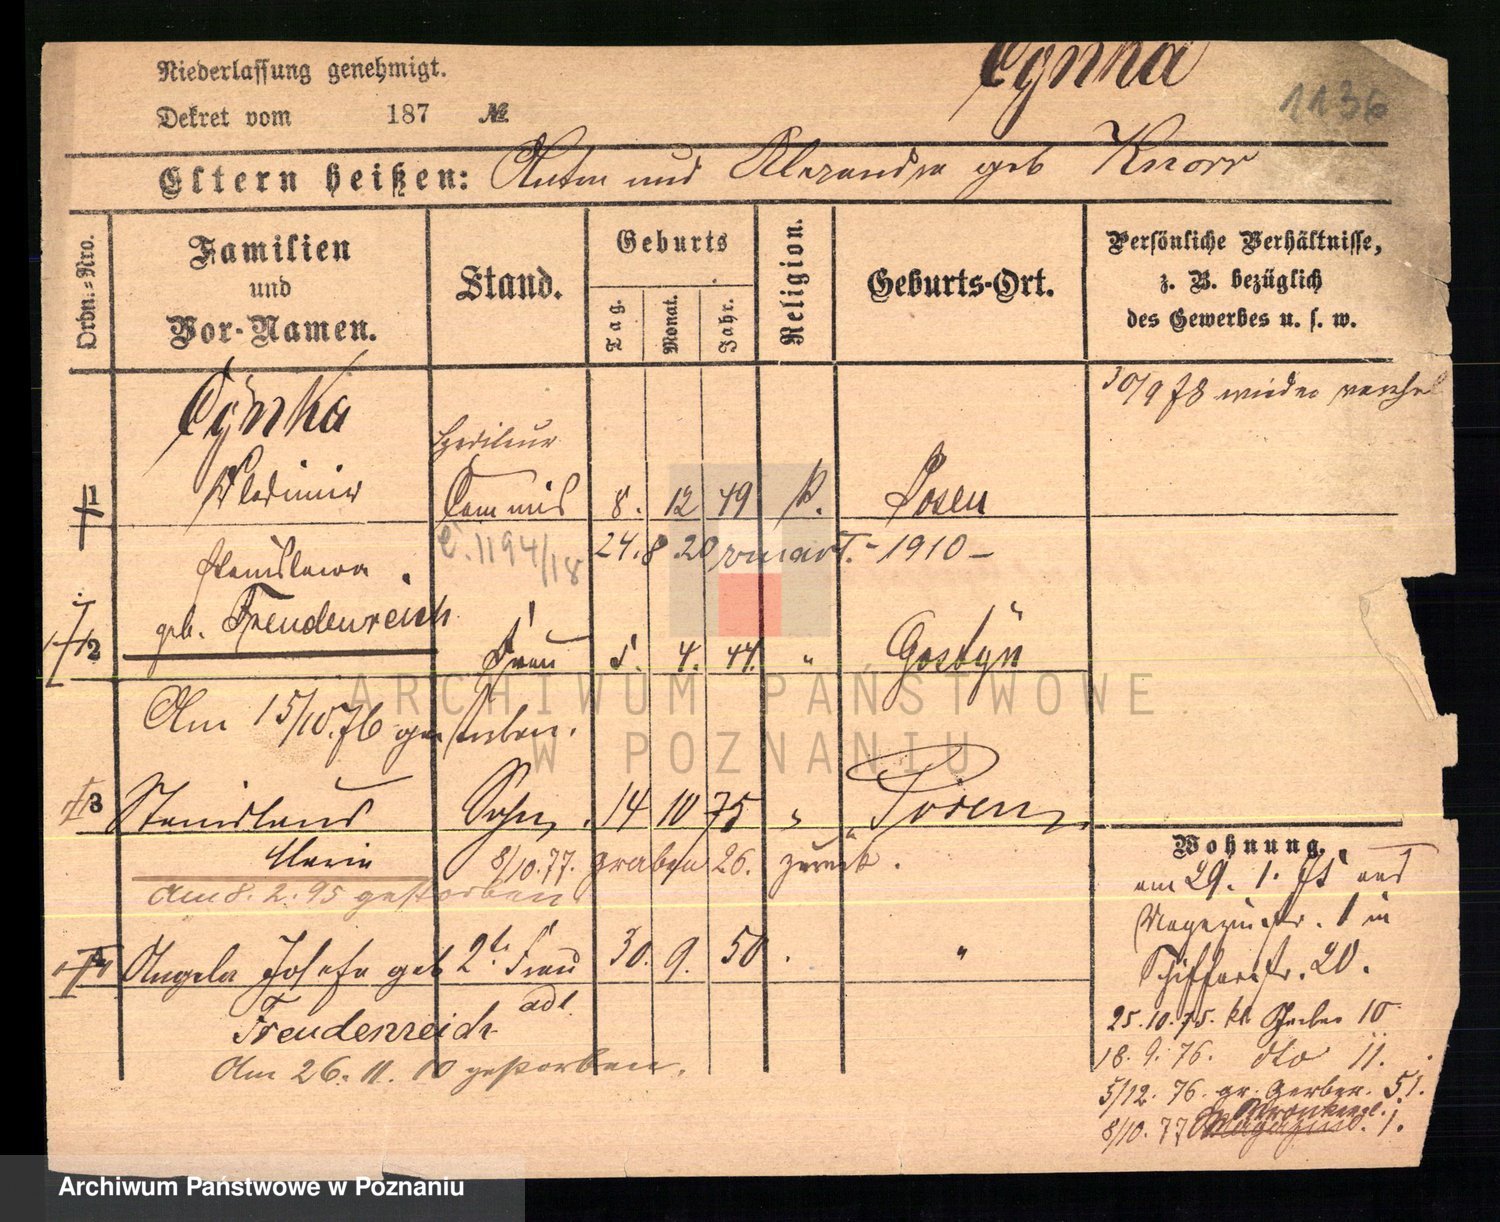 Cynka
1136
Niederlassung genehmigt.
Dekret vom 187 №
Eltern heißen: Anton und Alexandra geb Knorr
Ordn.=Nro.
Familien
und
Vor-Namen.
Stand.
Geburts
Tag.
Monat.
Jahr.
Religion.
Geburts-Ort.
Persönliche Verhältnisse,
z. B. bezüglich
des Gewerbes u. s. w.
30/9 78 wieder
Cynka
Spediteur
1 Wladimir Commis 8. 12 49 k. Posen
1194/18 24. 8. 20 - 1910 -
Stanislawa
geb. Freudenreich
2 Frau 5. 4. 47. " Gostyn
Am 15/10.76 gestorben.
3 Stanislaus Sohn 14 10 75 " Posen
Marin 8/10.77. graben 26. zurück.
am 8. 2. 95 gestorben
4 Angela Josefa geb 2te Frau 30. 9. 50 . "
Freudenreich adl
Am 26. 11. 10 gestorben.
Wohnung.
am 29. 1. 75 aus
Magazinstr. 1 in
Schifferstr. 20.
25.10.75. kl. Gerber 10
18. 9. 76. dto 11.
5/12. 76 gr. Gerber. 51.
8/10. 77 Magazins. 1.
ARCHIWUM PAŃSTWOWE
W POZNANIU
Archiwum Państwowe w Poznaniu